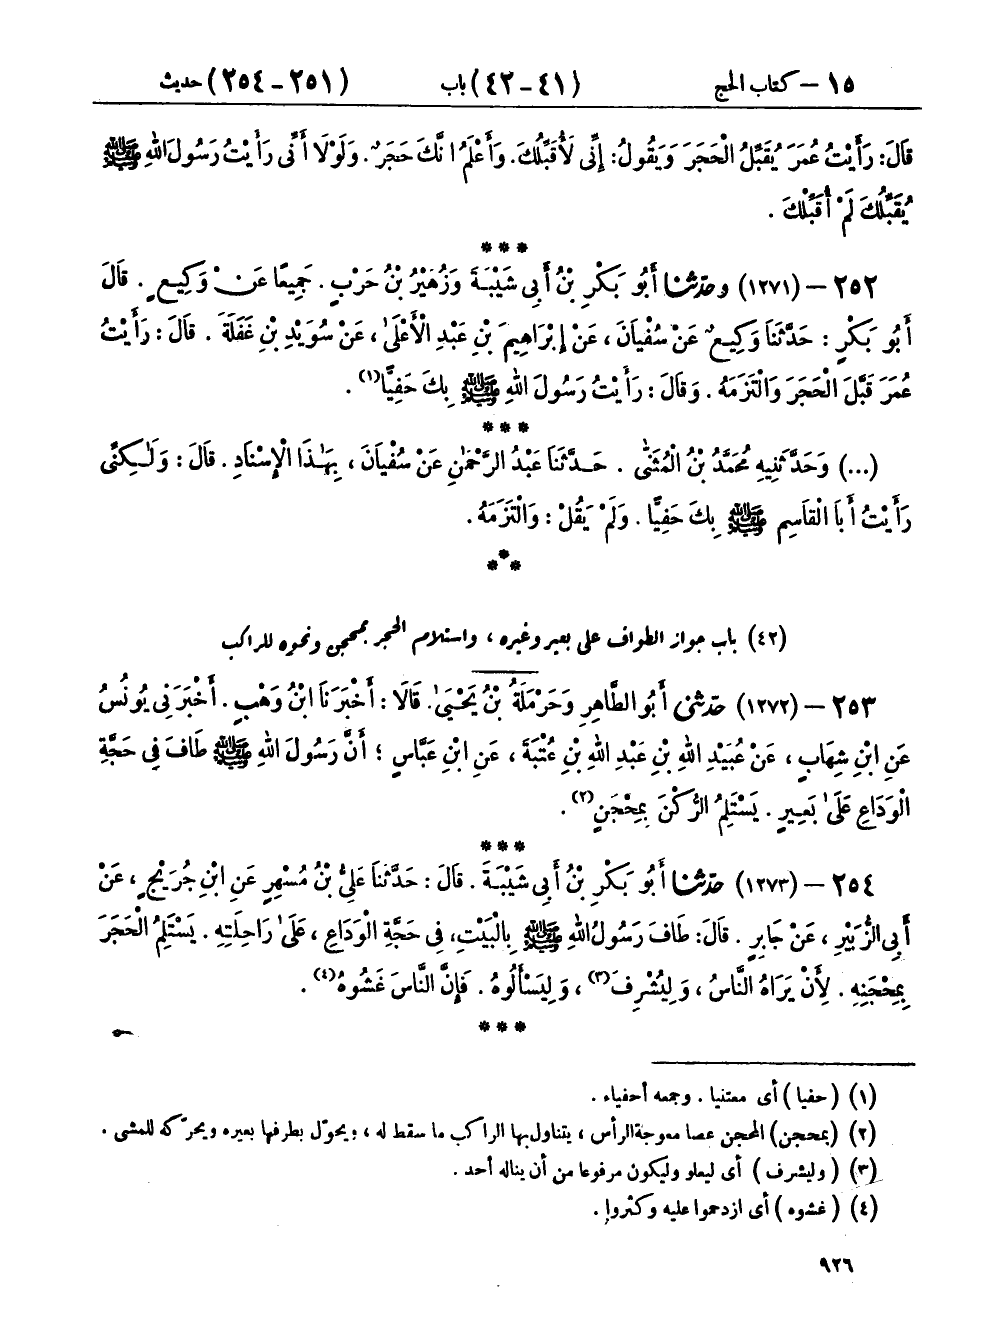 ١٥ – كتاب الحج (٤١-٤٢) باب (٢٥١-٢٥٤) حديث
قَالَ: رَأَيْتُ عُمَرَ يُقَبِّلُ الْحَجَرَ وَيَقُولُ: إِنِّى لَأُقَبِّلُكَ. وَأَعْلَمُ أَنَّكَ حَجَرٌ. وَلَوْلَا أَنِّى رَأَيْتُ رَسُولَ اللهِ ﷺ
يُقَبِّلُكَ لَمْ أُقَبِّلْكَ.
***
٢٥٢ – (١٢٧١) وحدّثنا أَبُو بَكْرِ بْنُ أَبِى شَيْبَةَ وَزُهَيْرُ بْنُ حَرْبٍ. جَمِيعًا عَنْ وَكِيعٍ. قَالَ
أَبُو بَكْرٍ: حَدَّثَنَا وَكِيعٌ عَنْ سُفْيَانَ، عَنْ إِبْرَاهِيمَ بْنِ عَبْدِ الْأَعْلَىٰ، عَنْ سُوَيْدِ بْنِ غَفَلَةَ. قَالَ: رَأَيْتُ
عُمَرَ قَبَّلَ الْحَجَرَ وَالْتَزَمَهُ. وَقَالَ: رَأَيْتُ رَسُولَ اللهِ ﷺ بِكَ حَفِيًّا(١).
***
(...) وَحَدَّثَنِيهِ مُحَمَّدُ بْنُ الْمُثَنَّىٰ. حَدَّثَنَا عَبْدُ الرَّحْمَٰنِ عَنْ سُفْيَانَ، بِهَٰذَا الْإِسْنَادِ. قَالَ: وَلَٰكِنِّى
رَأَيْتُ أَبَا الْقَاسِمِ ﷺ بِكَ حَفِيًّا. وَلَمْ يَقُلْ: وَالْتَزَمَهُ.
***
(٤٢) باب جواز الطواف على بعير وغيره، واستلام الحجر بمحجن ونحوه للراكب
٢٥٣ – (١٢٧٢) حدّثنى أَبُو الطَّاهِرِ وَحَرْمَلَةُ بْنُ يَحْيَىٰ. قَالَا: أَخْبَرَنَا ابْنُ وَهْبٍ. أَخْبَرَنِى يُونُسُ
عَنِ ابْنِ شِهَابٍ، عَنْ عُبَيْدِ اللهِ بْنِ عَبْدِ اللهِ بْنِ عُتْبَةَ، عَنِ ابْنِ عَبَّاسٍ؛ أَنَّ رَسُولَ اللهِ ﷺ طَافَ فِى حَجَّةِ
الْوَدَاعِ عَلَىٰ بَعِيرٍ. يَسْتَلِمُ الرُّكْنَ بِمِحْجَنٍ(٢).
***
٢٥٤ – (١٢٧٣) حدّثنا أَبُو بَكْرِ بْنُ أَبِى شَيْبَةَ. قَالَ: حَدَّثَنَا عَلِىُّ بْنُ مُسْهِرٍ عَنِ ابْنِ جُرَيْجٍ، عَنْ
أَبِى الزُّبَيْرِ، عَنْ جَابِرٍ. قَالَ: طَافَ رَسُولُ اللهِ ﷺ بِالْبَيْتِ، فِى حَجَّةِ الْوَدَاعِ، عَلَىٰ رَاحِلَتِهِ. يَسْتَلِمُ الْحَجَرَ
بِمِحْجَنِهِ. لِأَنْ يَرَاهُ النَّاسُ، وَلِيُشْرِفَ(٣)، وَلِيَسْأَلُوهُ. فَإِنَّ النَّاسَ غَشُوهُ(٤).
***
(١) (حفيا) أى معتنيا. وجمعه أحفياء.
(٢) (بمحجن) المحجن عصا معوجة الرأس، يتناول بها الراكب ما سقط له، ويحوّل بطرفها بعيره ويحرّكه للمشى.
(٣) (وليشرف) أى ليعلو وليكون مرفوعا من أن يناله أحد.
(٤) (غشوه) أى ازدحموا عليه وكثروا.
٩٢٦